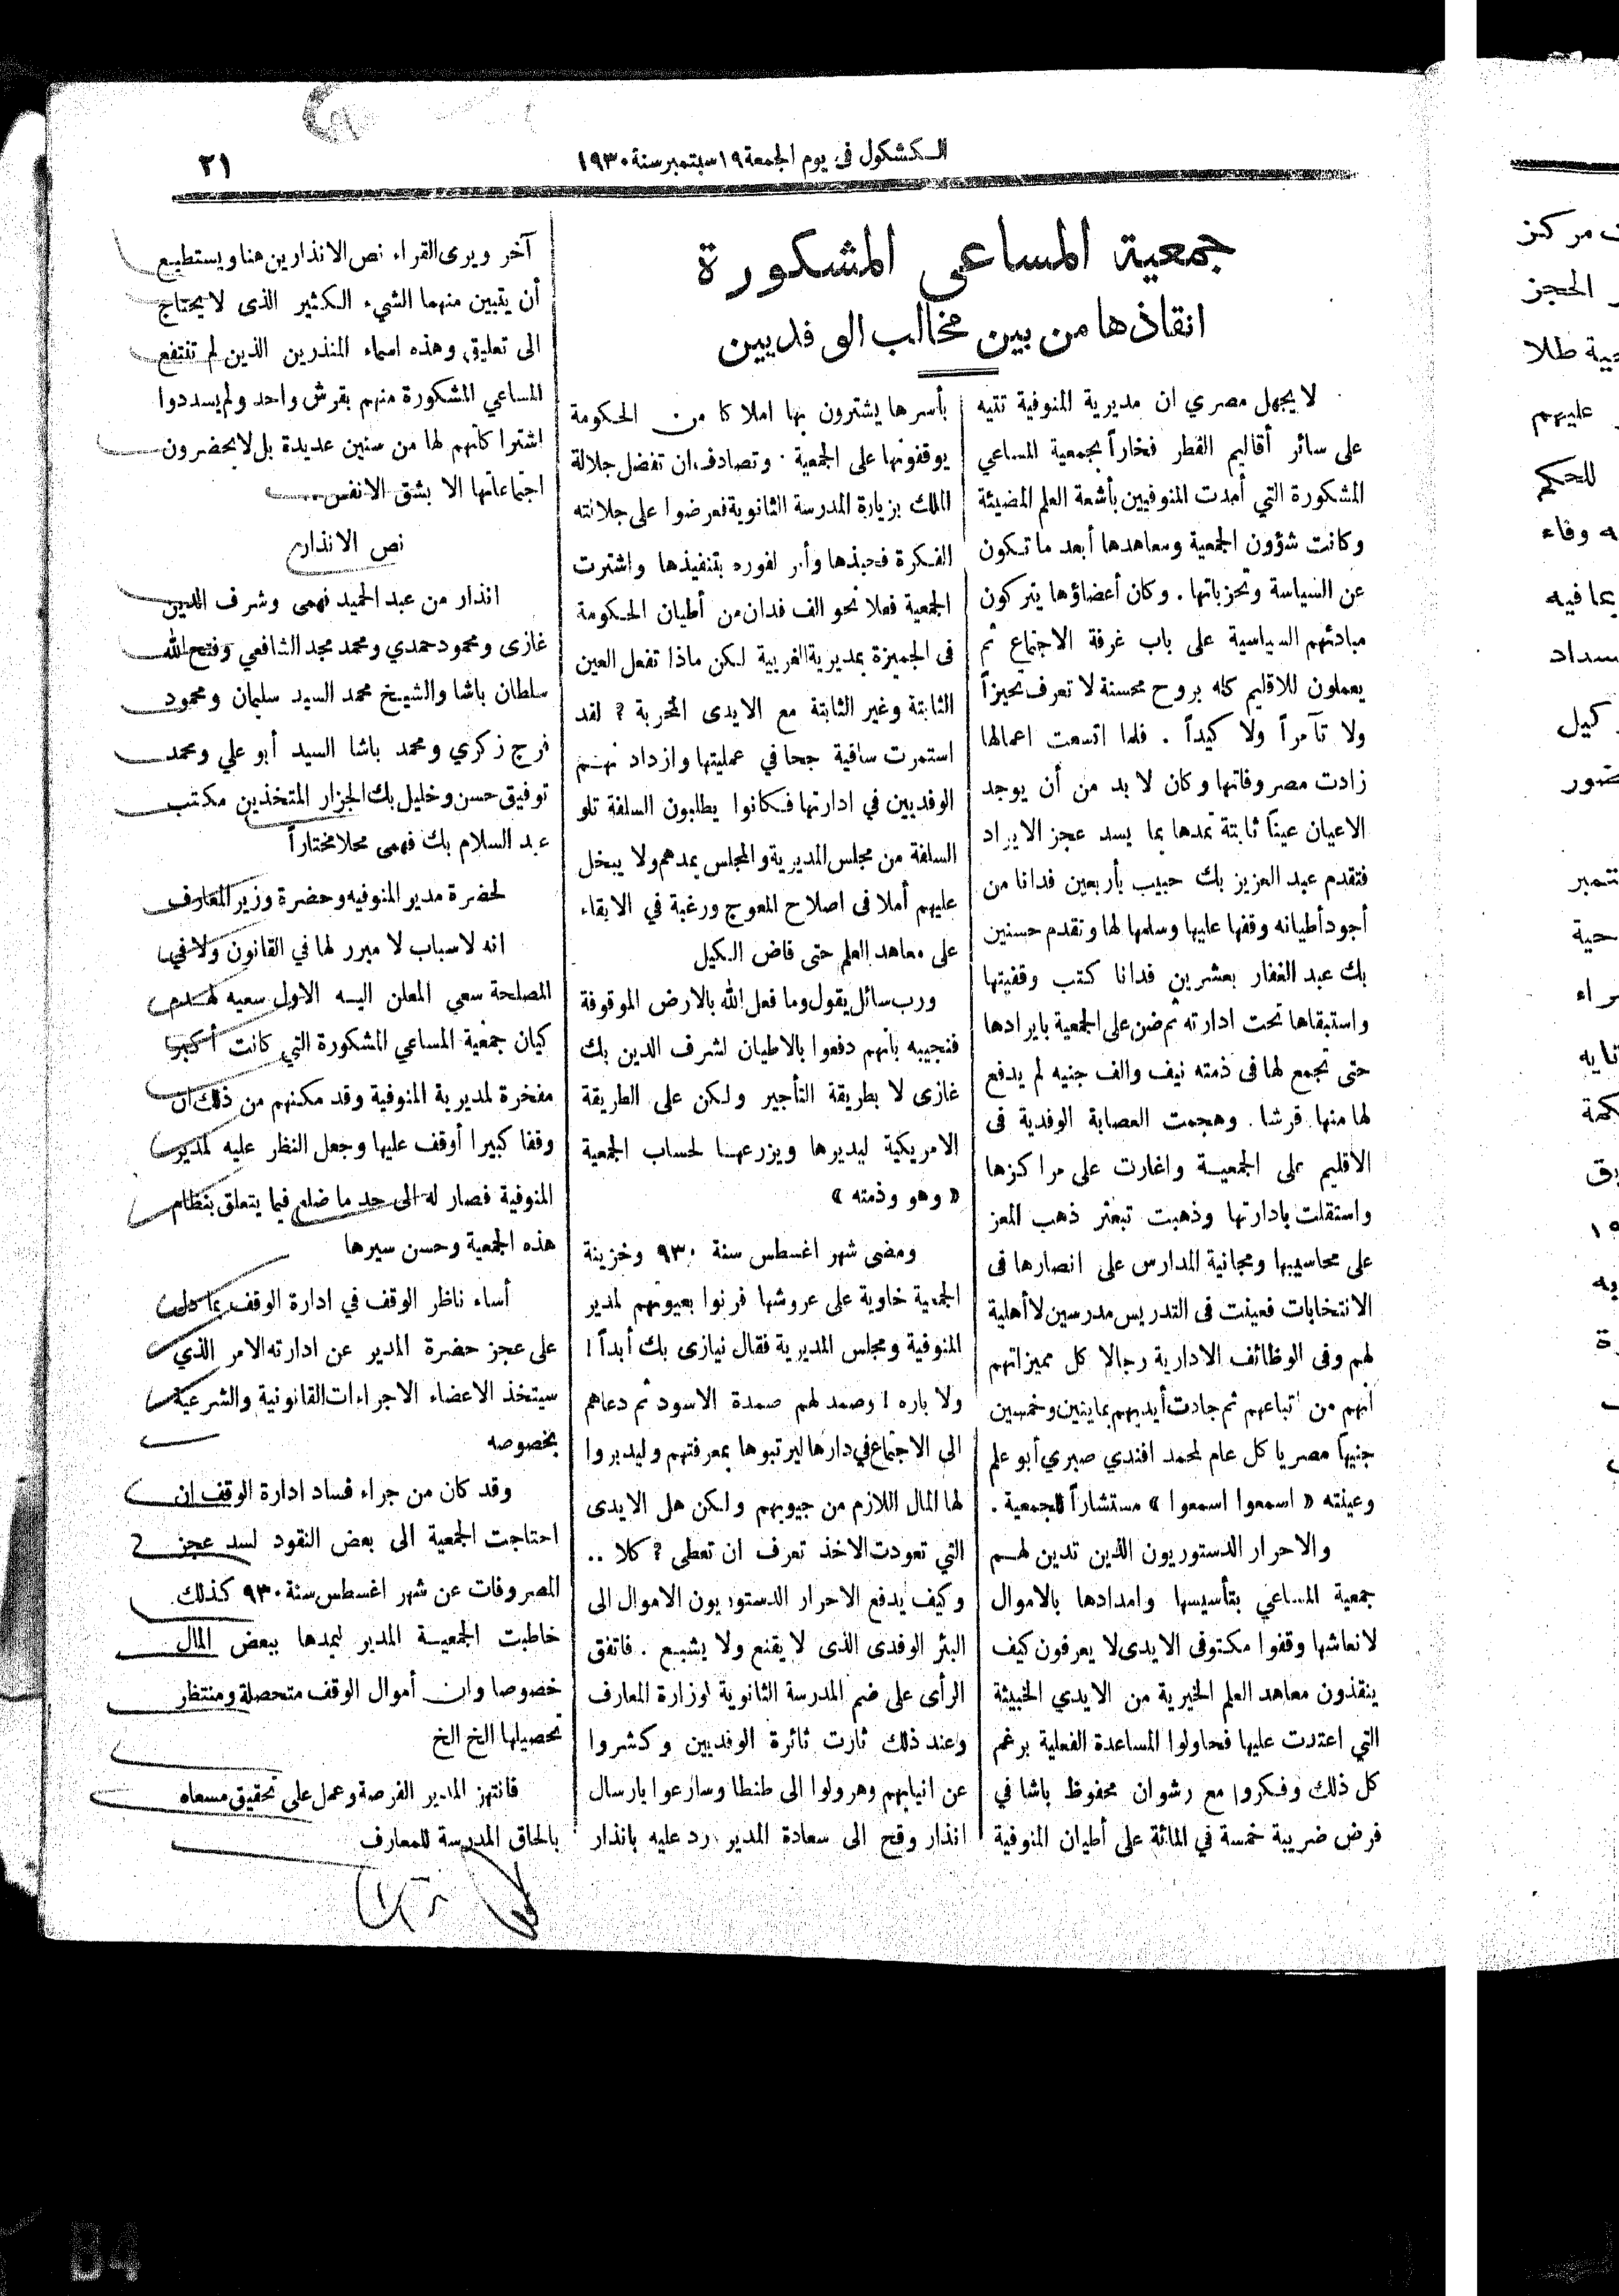 الكشكول في يوم الجمعة ١٩ سبتمبر سنة ١٩٣٠
٢١
جمعية المساعى المشكورة
انقاذها من بين مخالب الوفديين
لا يجهل مصري ان مديرية المنوفية تتيه
على سائر أقاليم القطر فخاراً بجمعية المساعي
المشكورة التي أمدت المنوفيين بأشعة العلم المضيئة
وكانت شؤون الجمعية ومعاهدها أبعد ما تكون
عن السياسة وتحزباتها . وكان أعضاؤها يتركون
مبادئهم السياسية على باب غرفة الاجتماع ثم
يعملون للاقليم كله بروح محسنة لا تعرف تحيزاً
ولا تآمراً ولا كيداً . فلما اتسعت اعمالها
زادت مصروفاتها وكان لا بد من أن يوجد
الاعيان عيناً ثابتة تمدها بما يسد عجز الايراد
فتقدم عبد العزيز بك حبيب بأربعين فدانا من
أجود أطيانه وقفها عليها وسلمها لها وتقدم حسنين
بك عبد الغفار بعشرين فدانا كتب وقفيتها
واستبقاها تحت ادارته ثم ضن على الجمعية بايرادها
حتى تجمع لها فى ذمته نيف والف جنيه لم يدفع
لها منها قرشا . وهجمت العصابة الوفدية فى
الاقليم على الجمعيـة واغارت على مراكزها
واستقلت بادارتها وذهبت تبعثر ذهب المعز
على محاسيبها ومجانية المدارس على انصارها فى
الانتخابات فعينت فى التدريس مدرسين لا أهلية
لهم وفى الوظائف الادارية رجالا كل مميزاتهم
انهم من اتباعهم ثم جادت أيديهم بمايتين وخمسين
جنيهاً مصريا كل عام لمحمد افندي صبري أبو علم
وعينته « اسمعوا اسمعوا » مستشاراً للجمعية .
والاحرار الدستوريون الذين تدين لهـم
جمعية المساعي بتأسيسها وامدادها بالاموال
لانعاشها وقفوا مكتوفى الايدى لا يعرفون كيف
ينقذون معاهد العلم الخيرية من الايدي الخبيثة
التي اعتدت عليها فحاولوا المساعدة الفعلية برغم
كل ذلك وفكروا مع رشوان محفوظ باشا في
فرض ضريبة خمسة في المائة على أطيان المنوفية
بأسرها يشترون بها املاكا من الحكومة
يوقفونها على الجمعية . وتصادف ان تفضل جلالة
الملك بزيارة المدرسة الثانوية فعرضوا على جلالته
الفكرة فحبذها وأمر لفوره بتنفيذها واشترت
الجمعية فعلا نحو الف فدان من أطيان الحكومة
فى الجميزة بمديرية الغربية لكن ماذا تفعل العين
الثابتة وغير الثابتة مع الايدى المخربة ؟ لقد
استمرت ساقية جحا في عمليتها وازداد نهـم
الوفديين في ادارتها فكانوا يطلبون السلفة تلو
السلفة من مجلس المديرية والمجلس يمدهم ولا يبخل
عليهم أملا فى اصلاح المعوج ورغبة في الابقاء
على معاهد العلم حتى فاض الكيل
ورب سائل يقول وما فعل الله بالارض الموقوفة
فنجيبه بانهم دفعوا بالاطيان لشرف الدين بك
غازى لا بطريقة التأجير ولكن على الطريقة
الامريكية ليديرها ويزرعهـا لحساب الجمعية
« وهو وذمته »
ومضى شهر اغسطس سنة ٩٣٠ وخزينة
الجمعية خاوية على عروشها فرنوا بعيونهم لمدير
المنوفية ومجلس المديرية فقال نيازى بك أبداً !
ولا باره ! وصمد لهم صمدة الاسود ثم دعاهم
الى الاجتماع في دارها ليرتبوها بمعرفتهم وليدبروا
لها المال اللازم من جيوبهم ولكن هل الايدى
التي تعودت الاخذ تعرف ان تعطى ؟ كلا ..
وكيف يدفع الاحرار الدستوريون الاموال الى
البئر الوفدى الذى لا يقنع ولا يشبع . فاتفق
الرأى على ضم المدرسة الثانوية لوزارة المعارف
وعند ذلك ثارت ثائرة الوفديين وكشروا
عن انيابهم وهرولوا الى طنطا وسارعوا بارسال
انذار وقح الى سعادة المدير رد عليه بانذار
آخر ويرى القراء نص الانذارين هنا ويستطيع
أن يتبين منهما الشيء الكثير الذى لا يحتاج
الى تعليق وهذه اسماء المنذرين الذين لم تنتفع
المساعي المشكورة منهم بقرش واحد ولم يسددوا
اشتراكاتهم لها من سنين عديدة بل لا يحضرون
اجتماعاتها الا بشق الانفس ..
نص الانذار
انذار من عبد الحميد فهمى وشرف الدين
غازى ومحمود حمدي ومحمد مجد الشافعي وفتح الله
سلطان باشا والشيخ محمد السيد سليمان ومحمود
فرج زكري ومحمد باشا السيد أبو علي ومحمد
توفيق حسن وخليل بك الجزار المتخذين مكتب
عبد السلام بك فهمى محلا مختاراً
لحضرة مدير المنوفيه وحضرة وزير المعارف
انه لاسباب لا مبرر لها في القانون ولا في
المصلحة سعي المعلن اليـه الاول سعيه لهـدم
كيان جمعية المساعي المشكورة التي كانت أكبر
مفخرة لمديرية المنوفية وقد مكنهم من ذلك ان
وقفا كبيرا أوقف عليها وجعل النظر عليه لمدير
المنوفية فصار له الى حد ما ضلع فيما يتعلق بنظام
هذه الجمعية وحسن سيرها
أساء ناظر الوقف في ادارة الوقف بما دل
على عجز حضرة المدير عن ادارته الامر الذي
سيتخذ الاعضاء الاجراءات القانونية والشرعية
بخصوصه
وقد كان من جراء فساد ادارة الوقف ان
احتاجت الجمعية الى بعض النقود لسد عجز
المصروفات عن شهر اغسطس سنة ٩٣٠ كذلك
خاطبت الجمعيـة المدير ليمدها ببعض المال
خصوصا وان أموال الوقف متحصلة ومنتظر
تحصيلها الخ الخ
فانتهز المدير الفرصة وعمل على تحقيق مسعاه
بالحاق المدرسة للمعارف
ت مركز
الحجز
طلا
عليهم
للحكم
وفاء
بما فيه
سداد
كيل
84